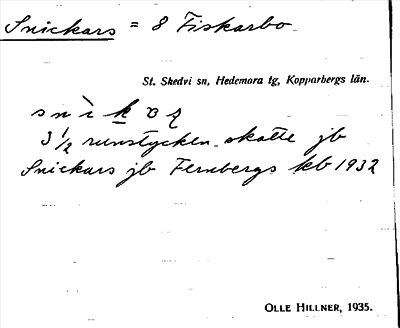 Snickars = 8 Fiskarbo
St. Skedvi sn, Hedemora tg, Kopparbergs län.
snìk
3 1/2 runstycken skatte jb
Snickars jb Fernbergs kb 1932
OLLE HILLNER, 1935.